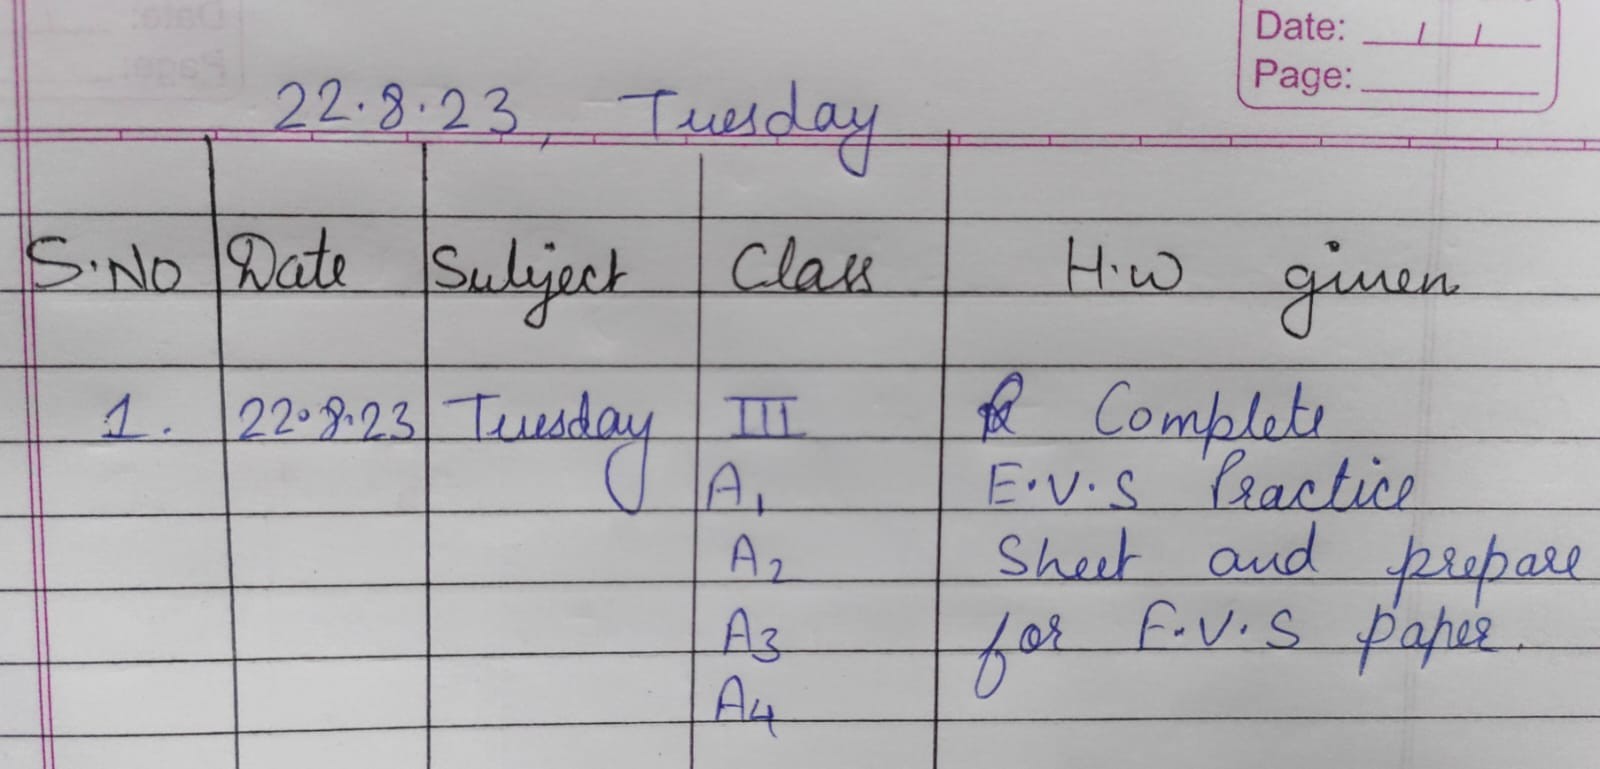 Date: / /
Page:
22.8.23, Tuesday
S.No Date Subject Class H.W given
1. 22.8.23 Tuesday III Complete
A1 E.V.S Practice
A2 Sheet and prepare
A3 for E.V.S paper.
A4